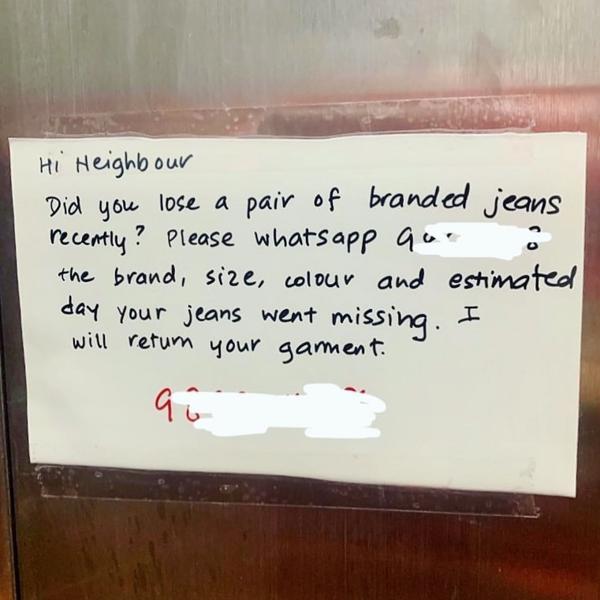 Hi Neighbour
Did you lose a pair of branded jeans
recently? Please whatsapp
the brand, size, colour and estimated
day your jeans went missing. I
will return your garment.